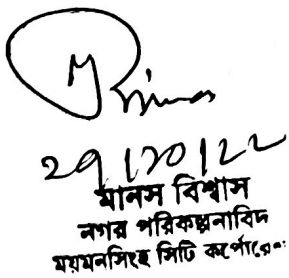 29/10/22
মানস বিশ্বাস
নগর পরিকল্পনাবিদ
ময়মনসিংহ সিটি কর্পোরেশন